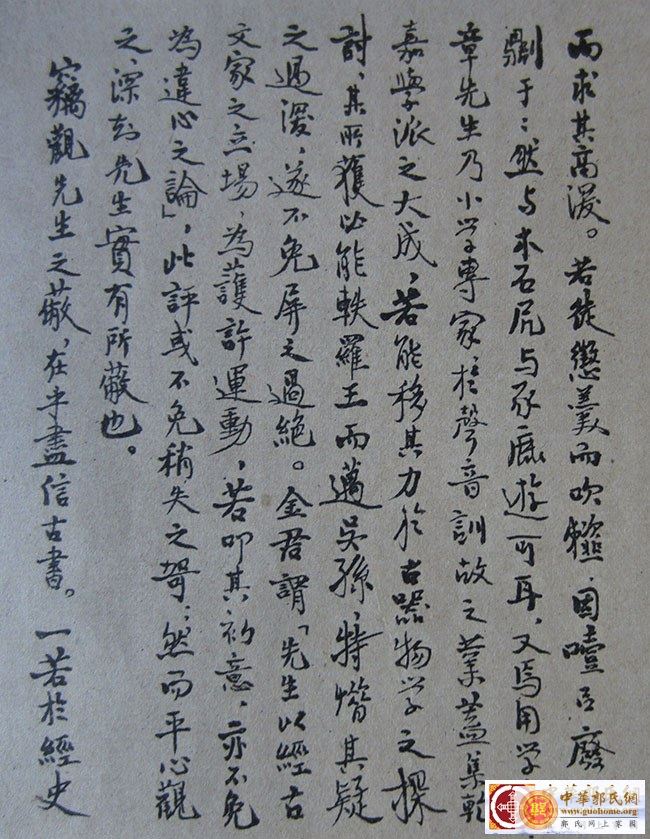 而求其高深。若徒懲羹而吹韲，因噎而廢
則于：然与木石居与豕鹿遊可耳，又焉用学
章先生乃小学專家，於聲音訓故之業蓋集乾
嘉學派之大成，若能移其力於古器物学之探
討，其所獲必能軼羅王而邁吳孫，特惜其疑
之過深，遂不免屏之過絶。金君謂「先生以經古
文家之立場，為護許運動，若叩其初意，亦不免
為違心之論」，此評或不免稍失之苛；然而平心觀
之，深知先生實有所蔽也。
竊觀先生之蔽，在乎盡信古書。一若於經史
中華郭氏網
www.guohome.org
郭氏網上家園